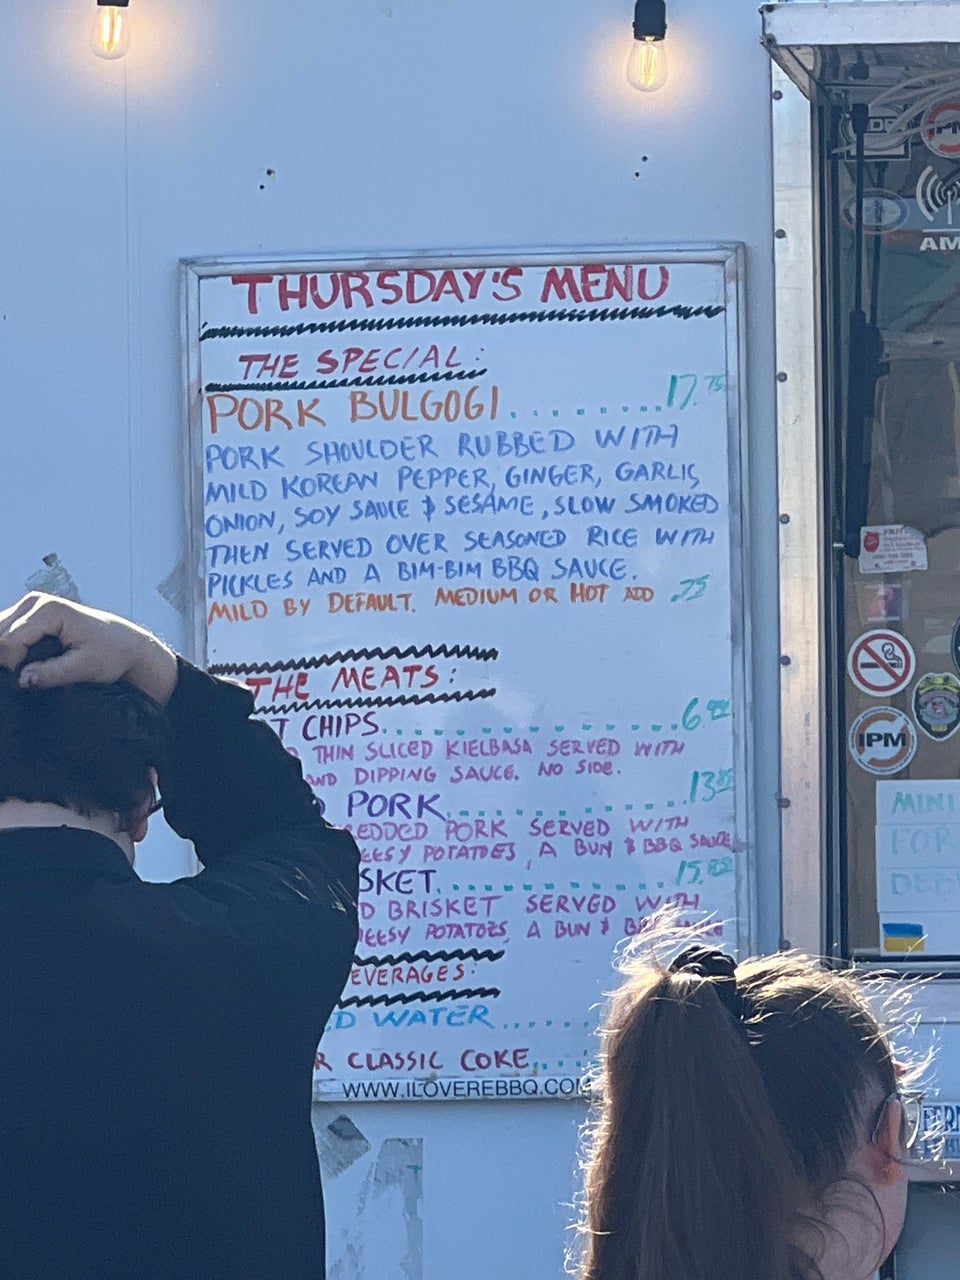 THURSDAY'S MENU
THE SPECIAL:
PORK BULGOGI........17.75
PORK SHOULDER RUBBED WITH
MILD KOREAN PEPPER, GINGER, GARLIC,
ONION, SOY SAUCE & SESAME, SLOW SMOKED
THEN SERVED OVER SEASONED RICE WITH
PICKLES AND A BIM-BIM BBQ SAUCE.
MILD BY DEFAULT. MEDIUM OR HOT ADD .75
THE MEATS:
CHIPS
THIN SLICED KIELBASA SERVED WITH
AND DIPPING SAUCE. NO SIDE.
PORK
SERVED WITH
POTATOES, A BUN & BBQ SAUCE
15
BRISKET SERVED WITH
POTATOES, A BUN &
WATER
CLASSIC COKE
WWW.ILOVEREBBQ.COM
AM
IPM
MINI
FOR